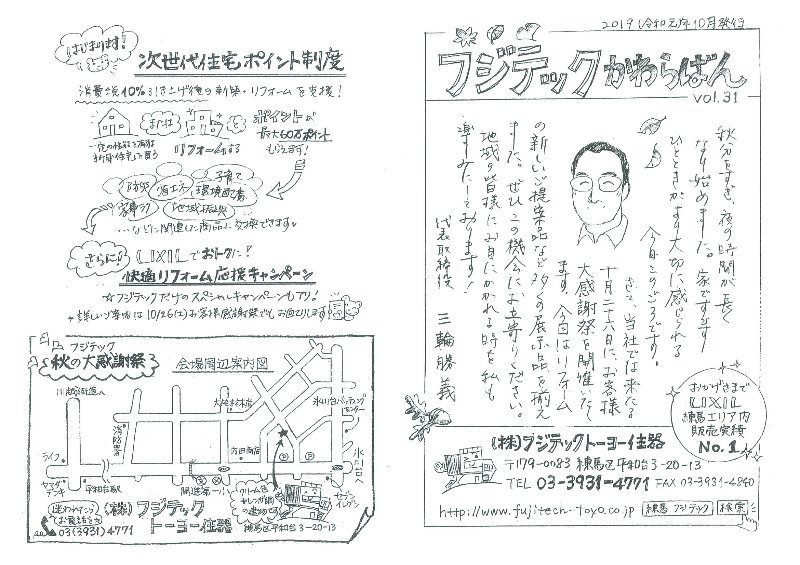 2019(令和元年)10月発行
フジテックかわらばん
vol.31
秋分をすぎ、夜の時間が長く
なり始めました。家ですごす
ひとときがより大切に感じられる
今日このごろです。
さて、当社では来たる
十月二十六日に、お客様
大感謝祭を開催いたし
ます。今回はリフォーム
の新しいご提案品など多くの展示品を揃え
ました。ぜひこの機会にお立寄りください。
地域の皆様にお目にかかれる時を私も
楽しみにしております!
代表取締役 三輪勝義
おかげさまで
LIXIL
練馬エリア内
販売実績
No.1
(株)フジテックトーヨー住器
〒179-0083 練馬区平和台3-20-13
TEL 03-3931-4771 FAX 03-3931-4840
http://www.fujitech-toyo.co.jp 練馬 フジテック 検索
はじまります!
次世代住宅ポイント制度
消費税10%引き上げ後の新築・リフォームを支援!
一定の性能を有する
新築住宅を買う
または
リフォームする
と
ポイントが
最大60万ポイント
もらえます!
防災
省エネ
子育て
環境配慮
家事ラク
地域振興
…などに関連した商品に交換できます
さらに!
LIXILでおトクに!
快適リフォーム応援キャンペーン
☆フジテックだけのスペシャルキャンペーンもアリ!
詳しい事は10/26(土)お客様感謝祭でもお回りします
フジテック
秋の大感謝祭
会場周辺案内図
川越街道へ
消防署
大桂材木店
氷川台バッティング
センター
方田商店
ライフ
ヤマダ
デンキ
平和台駅
開進第一小
氷川台へ
クリーム色
セブン
イレブン
迷われたら
お電話を
03(3931)4771
(株)フジテック
トーヨー住器
練馬区平和台3-20-13